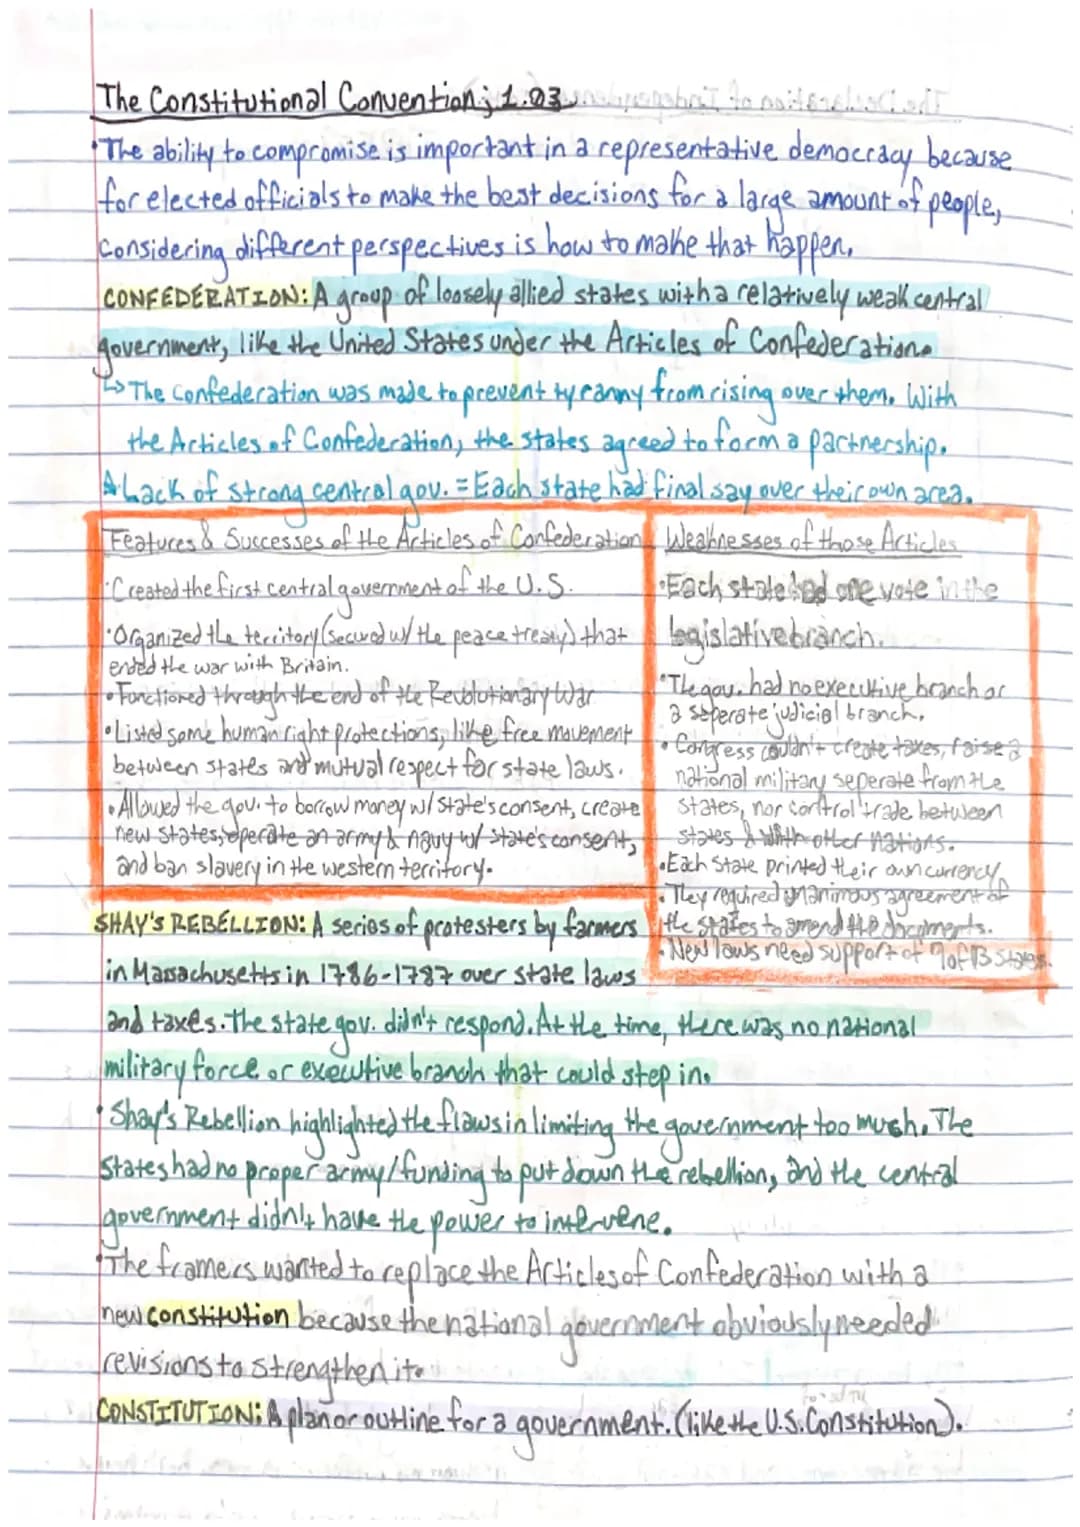 The Constitutional Convention; 1.03
•The ability to compromise is important in a representative democracy because
for elected officials to make the best decisions for a large amount of people,
considering different perspectives is how to make that happen.
CONFEDERATION: A group of loosely allied states with a relatively weak central
government, like the United States under the Articles of Confederation.
↳ The Confederation was made to prevent tyranny from rising over them. With
the Articles of Confederation, the states agreed to form a partnership.
Lack of strong central gov. = Each state had final say over their own area.
Features & Successes of the Articles of Confederation
•Created the first central government of the U.S.
•Organized the territory (secured w/ the peace treaty) that
ended the war with Britain.
•Functioned through the end of the Revolutionary War
•Listed some human right protections, like free movement
between states and mutual respect for state laws.
•Allowed the gov. to borrow money w/ state's consent, create
new states, operate an army & navy w/ state's consent,
and ban slavery in the western territory.
Weaknesses of those Articles
•Each state had one vote in the
legislative branch.
•The gov. had no executive branch or
a seperate judicial branch.
•Congress couldn't create taxes, raise a
national military seperate from the
states, nor control trade between
states & with other nations.
•Each State printed their own currency
•They required unanimous agreement of
the states to amend the documents.
•New laws need support of 9 of 13 states.
SHAY'S REBELLION: A series of protesters by farmers
in Massachusetts in 1786-1787 over state laws
and taxes. The state gov. didn't respond. At the time, there was no national
military force or executive branch that could step in.
•Shay's Rebellion highlighted the flaws in limiting the government too much. The
states had no proper army/funding to put down the rebellion, and the central
government didn't have the power to intervene.
•The framers wanted to replace the Articles of Confederation with a
new constitution because the national government obviously needed
revisions to strengthen it.
CONSTITUTION: A plan or outline for a government. (like the U.S. Constitution).